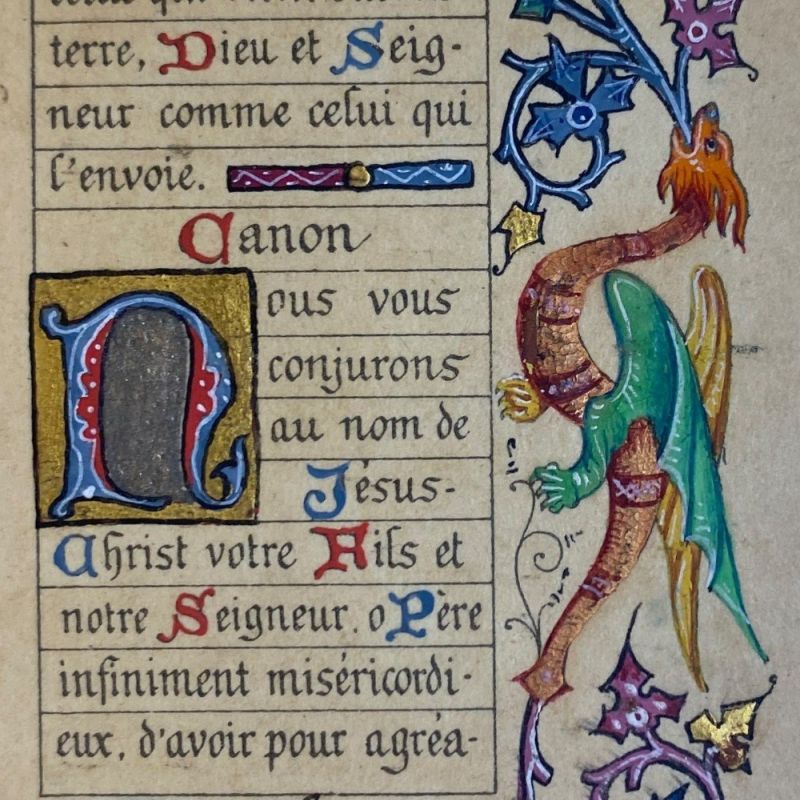 terre, Dieu et Seig-
neur comme celui qui
l'envoie.
Canon
Nous vous
conjurons
au nom de
Jésus-
Christ votre Fils et
notre Seigneur, o Père
infiniment miséricordi-
eux, d'avoir pour agréa-